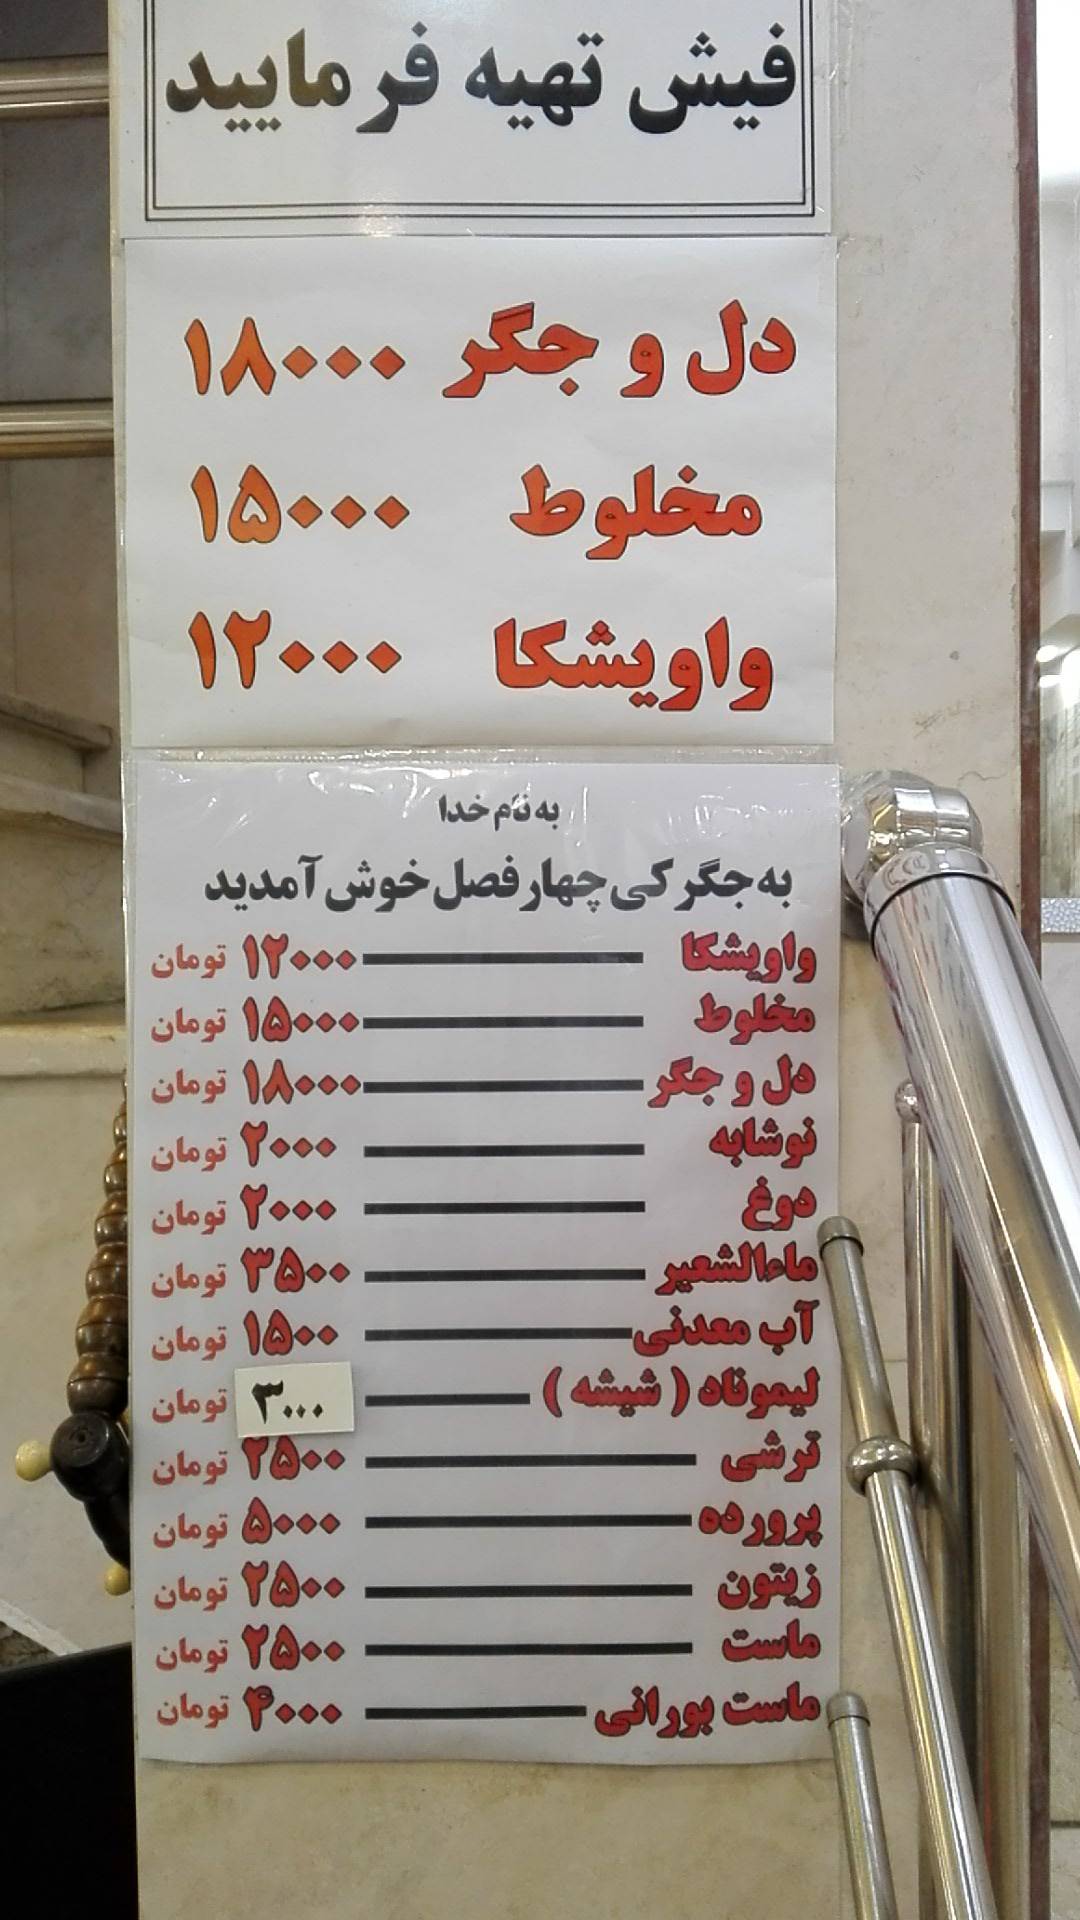 فیش تهیه فرمایید
دل و جگر ۱۸۰۰۰
مخلوط ۱۵۰۰۰
واویشکا ۱۲۰۰۰
به نام خدا
به جگرکی چهار فصل خوش آمدید
واویشکا ۱۲۰۰۰ تومان
مخلوط ۱۵۰۰۰ تومان
دل و جگر ۱۸۰۰۰ تومان
نوشابه ۲۰۰۰ تومان
دوغ ۲۰۰۰ تومان
ماءالشعیر ۳۵۰۰ تومان
آب معدنی ۱۵۰۰ تومان
لیموناد ( شیشه ) ۳۰۰۰ تومان
ترشی ۲۵۰۰ تومان
پرورده ۵۰۰۰ تومان
زیتون ۲۵۰۰ تومان
ماست ۲۵۰۰ تومان
ماست بورانی ۴۰۰۰ تومان